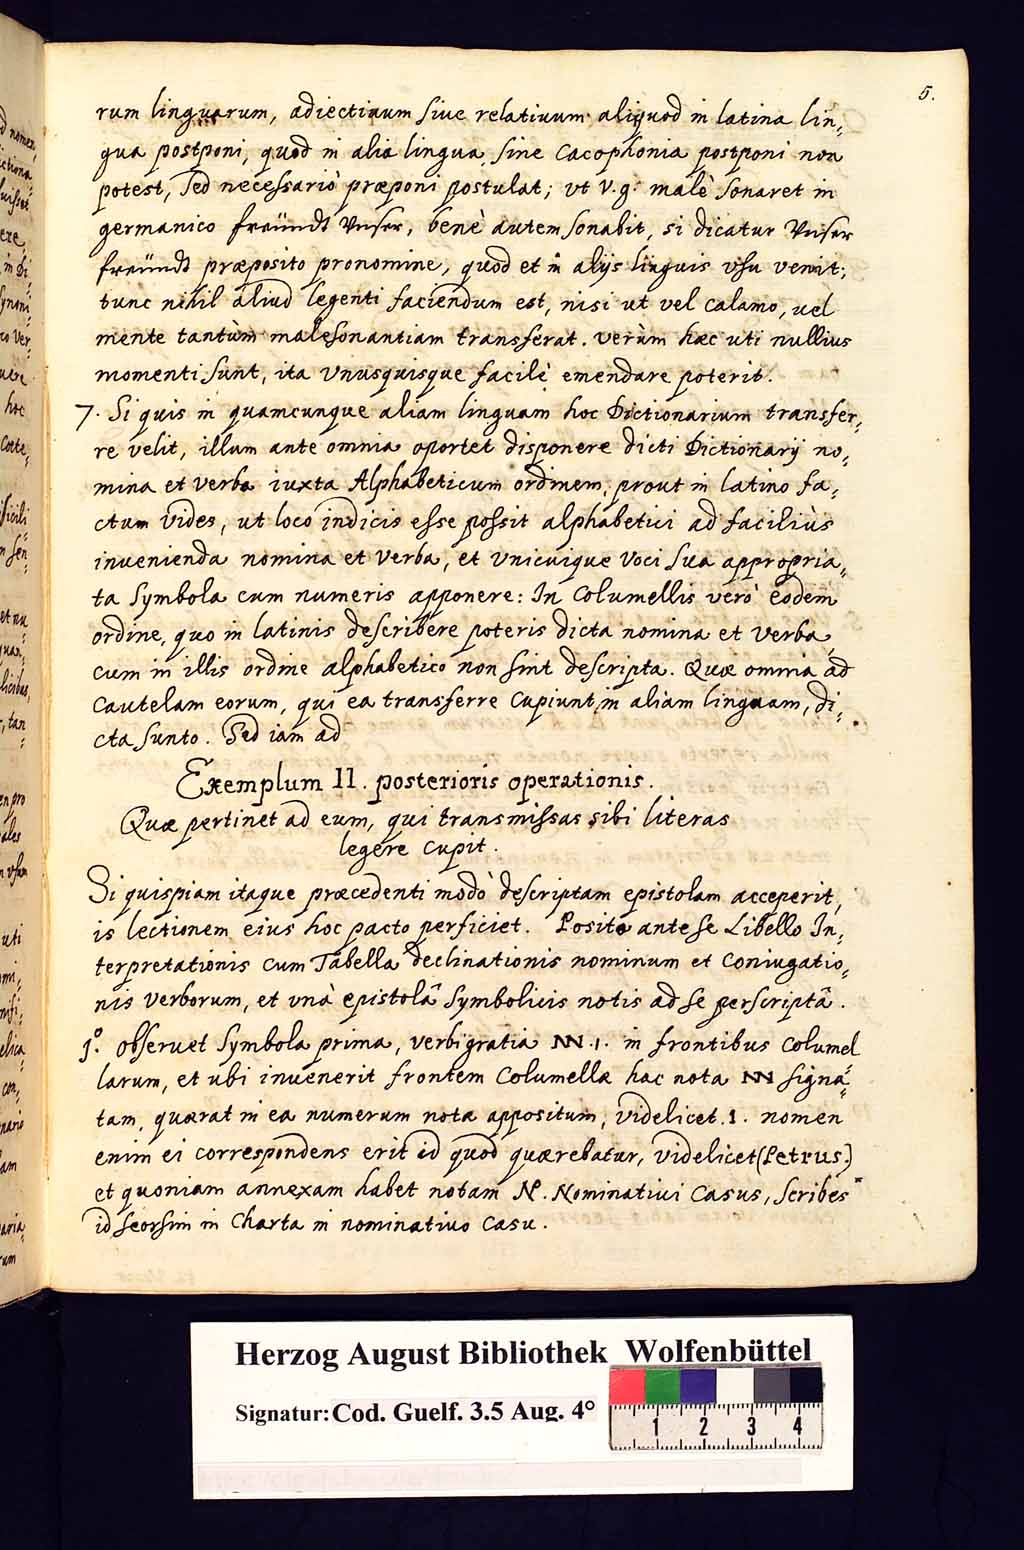 5.
rum linguarum, adiectiuum siue relatiuum aliquod in latina lin,
gua postponi, quod in alia lingua sine cacophonia postponi non
potest, sed necessariò præponi postulat; vt v.g: malè sonaret in
germanico freündt Vnser, benè autem sonabit, si dicatur Vnser
freündt præposito pronomine, quod et in alijs linguis vsu venit;
tunc nihil aliud legenti faciendum est, nisi ut vel calamo, uel
mente tantùm malesonantiam transferat. verùm hæc uti nullius
momenti sunt, ita vnusquisque facilè emendare poterit.
7. Si quis in quamcunque aliam linguam hoc Dictionarium transfer,
re velit, illum ante omnia oportet disponere dicti Dictionarij no,
mina et verba iuxta Alphabeticum ordinem, prout in latino fa,
ctum vides, ut loco indicis esse possit alphabetici ad faciliùs
inuenienda nomina et verba, et vnicuique voci sua appropria,
ta symbola cum numeris apponere: In Columellis verò eodem
ordine, quo in latinis describere poteris dicta nomina et verba,
cum in illis ordine alphabetico non sint descripta. Quæ omnia ad
cautelam eorum, qui ea transferre cupiunt in aliam linguam, di,
cta sunto. Sed iam ad
Exemplum II. posterioris operationis.
Quæ pertinet ad eum, qui transmissas sibi literas
legere cupit.
Si quispiam itaque præcedenti modò descriptam epistolam acceperit,
is lectionem eius hoc pacto perficiet. Posito ante se Libello In,
terpretationis cum Tabella declinationis nominum et coniugatio,
nis verborum, et vnà epistolâ symbolicis notis ad se perscriptâ.
1º. obseruet symbola prima, verbi gratia NN .1. in frontibus columel
larum, et ubi inuenerit frontem Columellæ hac nota NN signa,
tam, quærat in ea numerum notæ appositum, videlicet .1. nomen
enim ei correspondens erit id quod quærebatur, videlicet (Petrus.)
et quoniam annexam habet notam N. Nominatiui casus, scribes
id seorsim in charta in nominatiuo casu.
Herzog August Bibliothek Wolfenbüttel
Signatur: Cod. Guelf. 3.5 Aug. 4°
1 2 3 4